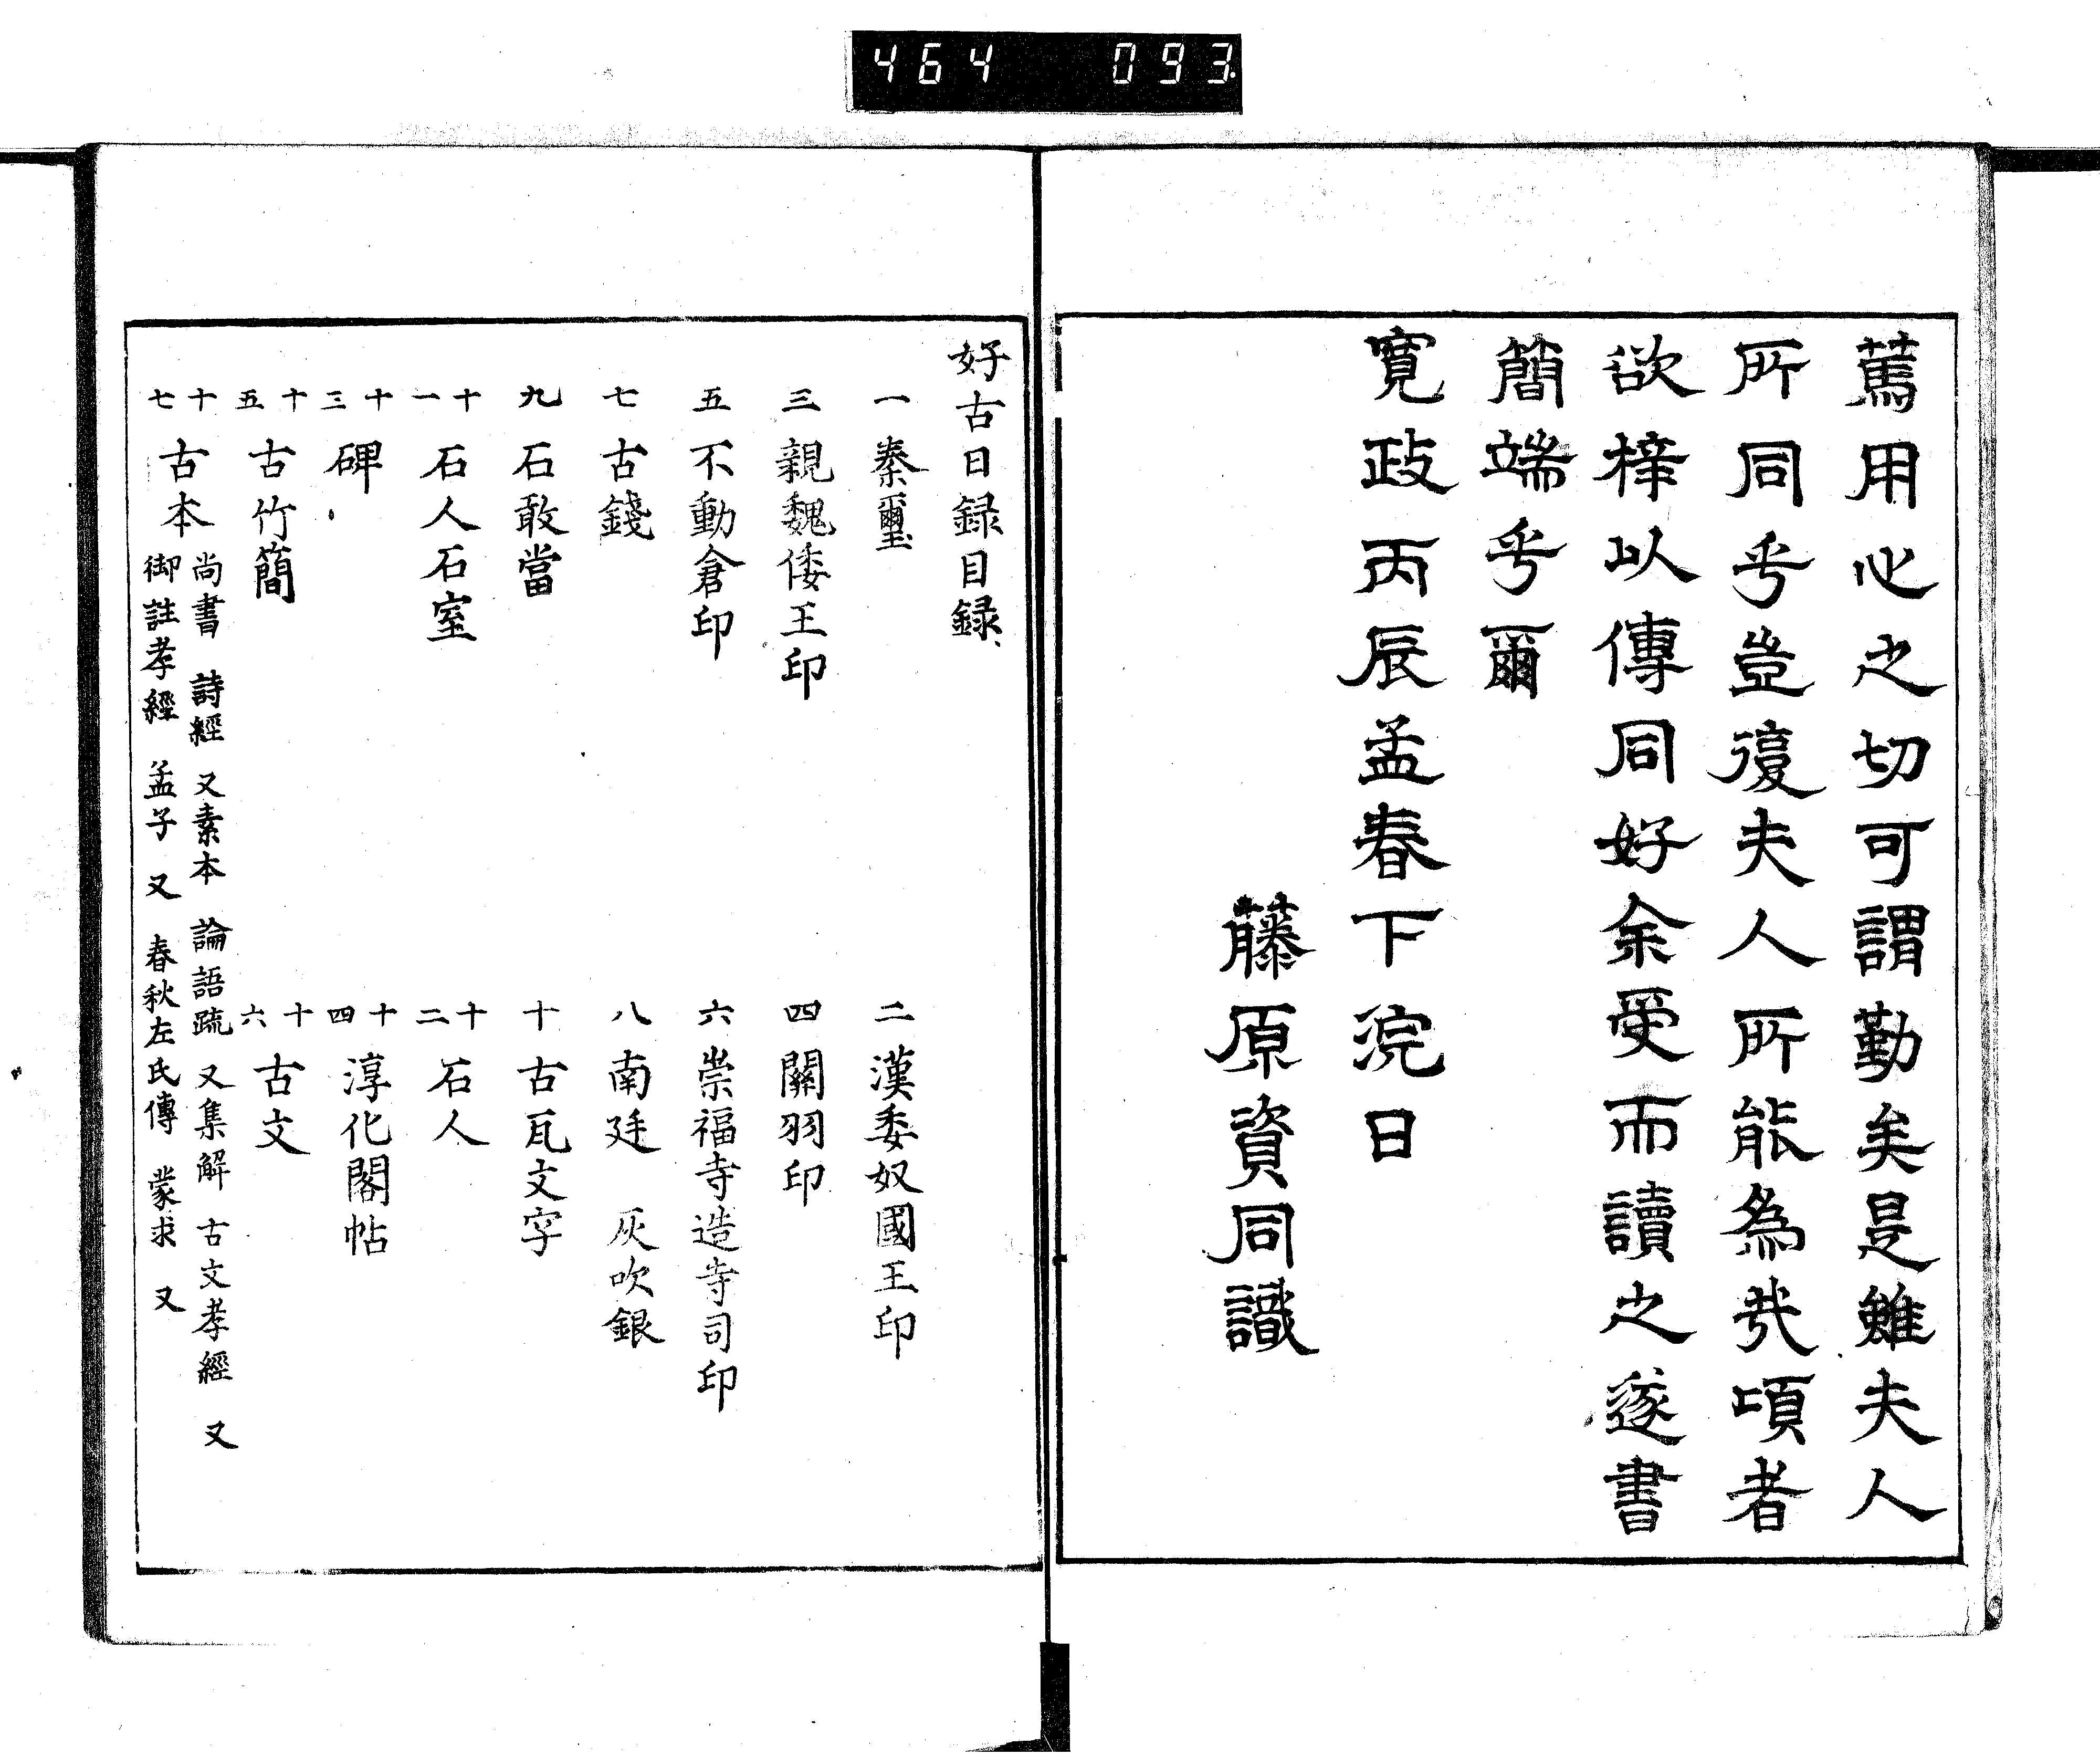 464 093
篤用心之切可謂勤矣是雖夫人
所同乎豈復夫人所能為哉頃者
欲梓以傳同好余受而讀之遂書
簡端乎爾
寛政丙辰孟春下浣日
藤原資同識
好古日録目録
一 秦璽
二 漢委奴國王印
三 親魏倭王印
四 關羽印
五 不動倉印
六 崇福寺造寺司印
七 古錢
八 南廷 灰吹銀
九 石敢當
十 古瓦文字
十一 石人石室
十二 石人
十三 碑
十四 淳化閣帖
十五 古竹簡
十六 古文
十七 古本
尚書 詩經 又素本 論語疏 又集解 古文孝經 又
御註孝經 孟子 又 春秋左氏傳 蒙求 又